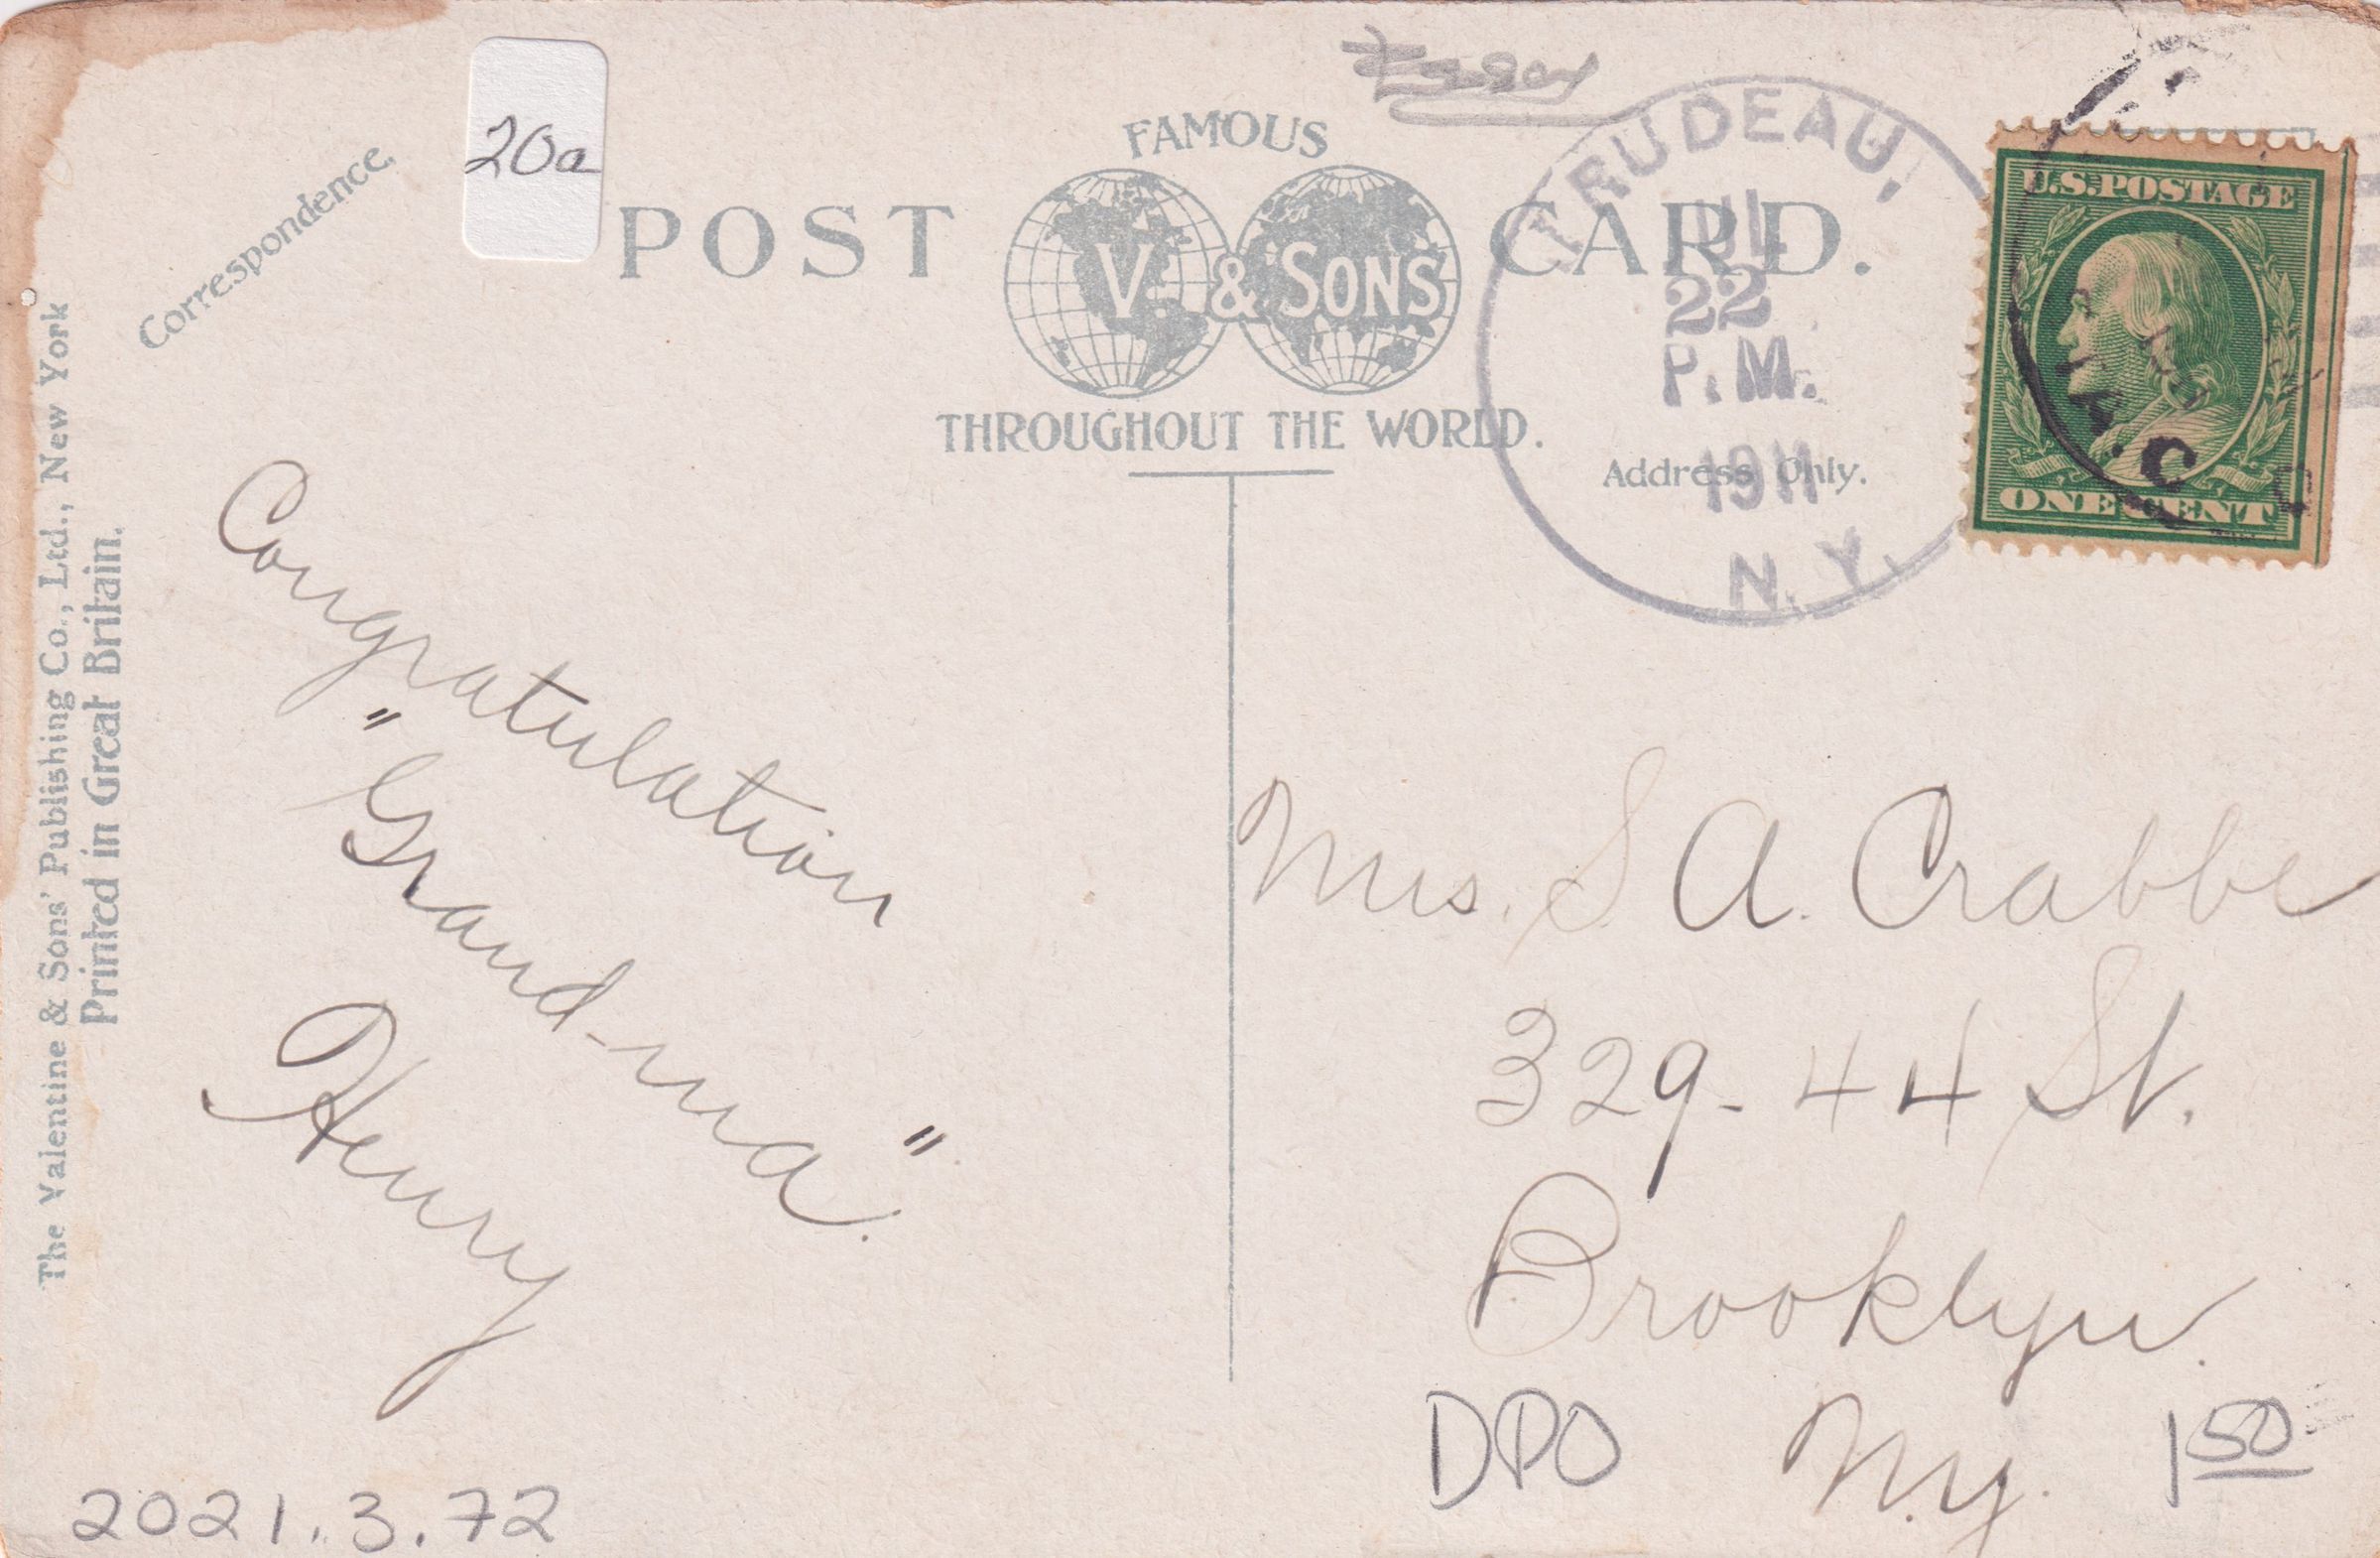 20a
Correspondence.
FAMOUS
POST V. & SONS CARD.
THROUGHOUT THE WORLD.
Address Only.
TRUDEAU,
JUL
22
P.M.
1911
N.Y.
U.S. POSTAGE
ONE CENT
The Valentine & Sons' Publishing Co., Ltd., New York
Printed in Great Britain.
Congratulation
"Grand-ma."
Henry
Mrs. S A. Crabbe
329-44 St.
Brooklyn.
N.Y.
DPO
1 50
2021.3.72